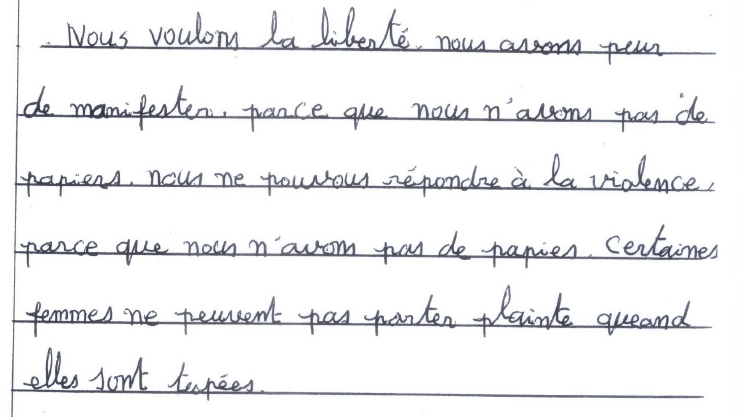 . Nous voulons la liberté. nous avons peur
de manifester. parce que nous n'avons pas de
papiers. nous ne pouvous répondre à la violence,
parce que nous n'avons pas de papies. Certaines
femmes ne peuvent pas porter plainte queand
elles sont tapées.